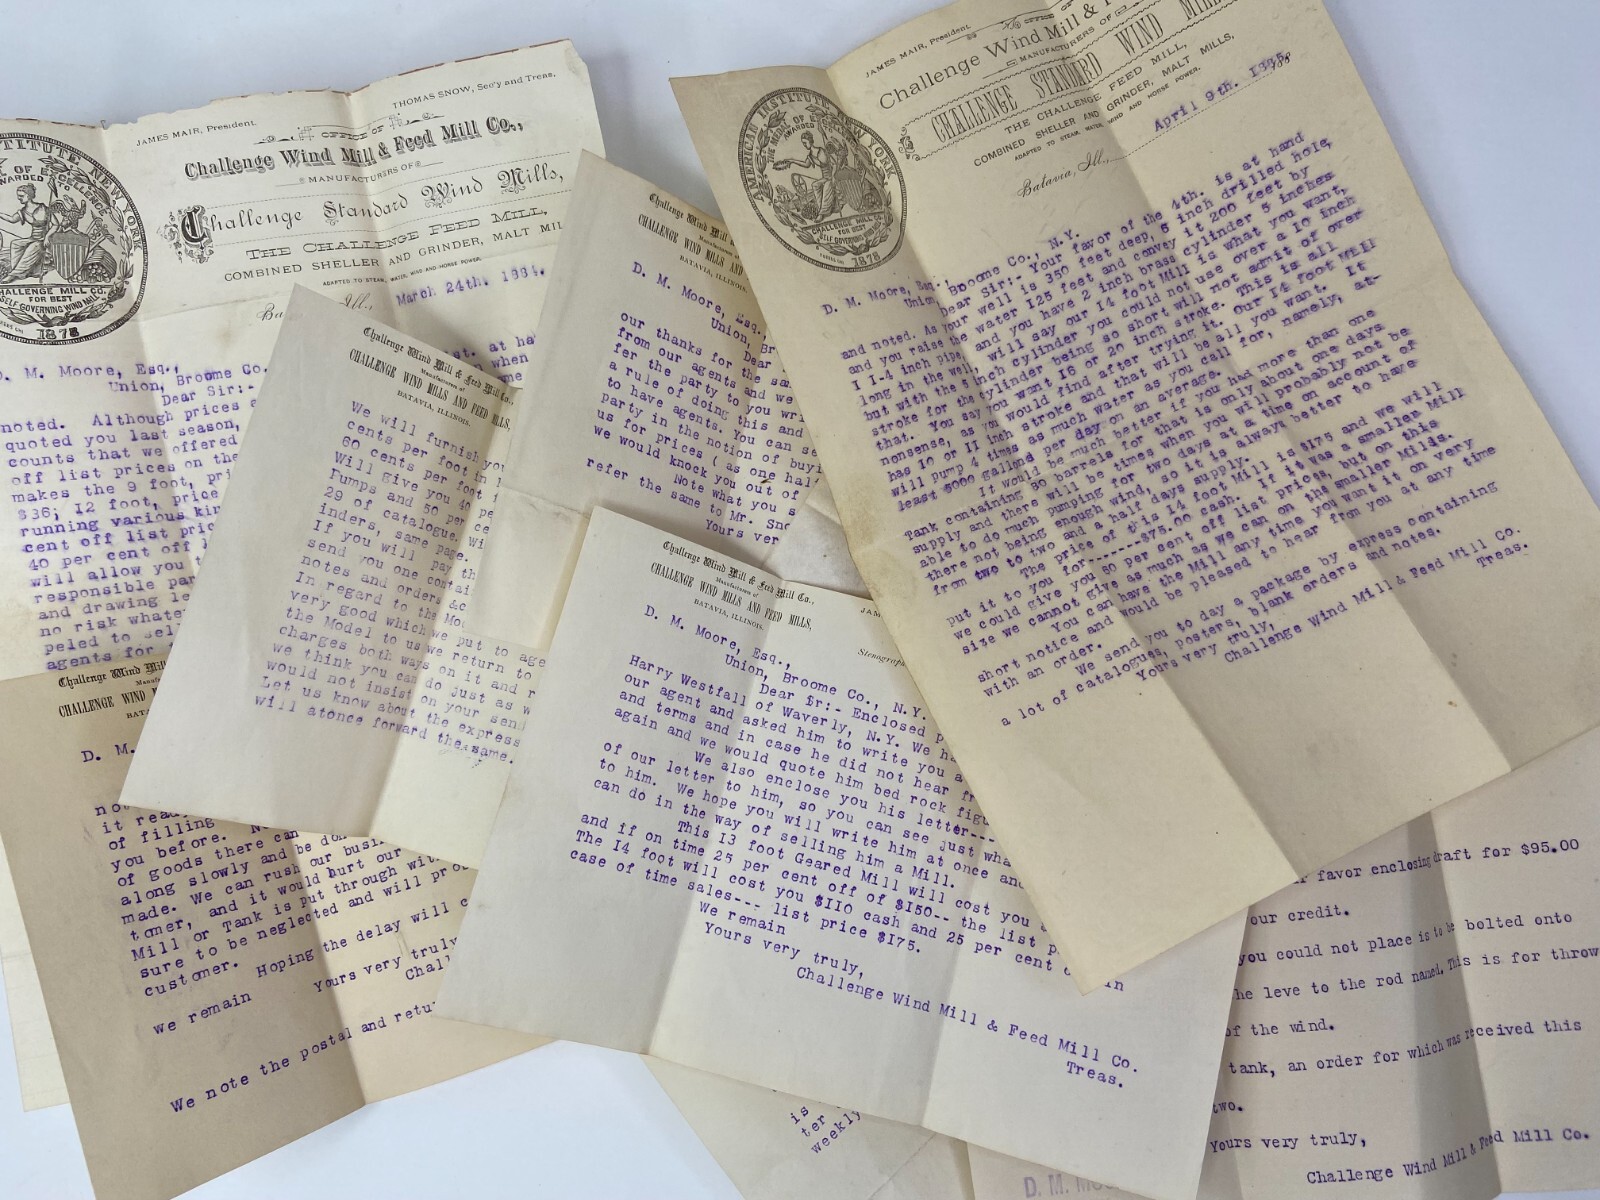 THOMAS SNOW, Sec'y and Treas.
JAMES MAIR, President.
OFFICE OF
Challenge Wind Mill & Feed Mill Co.,
MANUFACTURERS OF
Challenge Standard Wind Mills,
THE CHALLENGE FEED MILL,
COMBINED SHELLER AND GRINDER, MALT MIL
ADAPTED TO STEAM, WATER, WIND AND HORSE POWER.
Ill., March 24th. 1884.
NEW YORK
CHALLENGE MILL CO.
FOR BEST
SELF GOVERNING WIND MILL
1878
D. M. Moore, Esq.,
Union, Broome Co.
Dear Sir:-
noted. Although prices
quoted you last season,
counts that we offered
off list prices on the
makes the 9 foot,
$36; I2 foot, price
running various kin
cent off list pric
40 per cent off
will allow you
responsible par
and drawing le
no risk whate
peled to sell
agents for
Challenge Wind Mill
CHALLENGE WIND M
D. M.
not
it rea
of filling
you before.
of goods there can
along slowly and be don
made. We can rush our busi
tomer, and it would hurt our
Mill or Tank is put through wit
sure to be neglected and will pro
customer.
Hoping the delay will
we remain
Yours very truly
Chal
We note the postal and retu
Challenge Wind Mill & Feed Mill Co.,
Manufacturers of
CHALLENGE WIND MILLS AND FEED MILLS,
BATAVIA, ILLINOIS.
We will furnish you
cents per foot in
60 cents per foot
Will give you 40
Pumps and 50 per ce
29 of catalogue. Wi
inders, same page.
If you will pay th
send you one contai
notes and orders &c
In regard to the Mo
very good which we put to age
the Model to us we return to
charges both ways on it and
we think you can do just as w
would not insist on your sen
Let us know about the express
will atonce forward the same.
Challenge Wind Mill &
CHALLENGE WIND MILLS AND
BATAVIA, ILLINOIS.
D. M. Moore, Esq.
Union, Br
Dear
our thanks for the sam
from our agents and we
fer the party to you wri
a rule of doing this and
to have agents. You can se
party in the notion of buyi
us for prices ( as one half
we would knock you out of
Note what you s
refer the same to Mr. Sno
Yours ver
Challenge Wind Mill & Feed Mill Co.,
Manufacturers of
CHALLENGE WIND MILLS AND FEED MILLS,
BATAVIA, ILLINOIS.
JAM
Stenograp
D. M. Moore, Esq.,
Union, Broome Co., N.Y.
Dear $r:- Enclosed
Harry Westfall of Waverly, N.Y. We ha
our agent and asked him to write you
and terms and in case he did not hear fr
again and we would quote him bed rock figu
We also enclose you his letter---
of our letter to him, so you can see just wha
to him. We hope you will write him at once and
can do in the way of selling him a Mill.
This I3 foot Geared Mill will cost you
and if on time 25 per cent off of $I50-- the list p
The I4 foot will cost you $IIO cash and 25 per cent
in
case of time sales--- list price $I75.
We remain
Yours very truly,
Challenge Wind Mill & Feed Mill Co.
Treas.
JAMES MAIR, President.
OFFICE OF
Challenge Wind Mill &
MANUFACTURERS OF
CHALLENGE STANDARD WIND MILL
THE CHALLENGE FEED MILL,
COMBINED SHELLER AND GRINDER, MALT MILLS,
ADAPTED TO STEAM, WATER, WIND AND HORSE POWER.
Batavia, Ill., April 9th. I885. 188
AMERICAN INSTITUTE NEW YORK
THE MEDAL OF EXCELLENCE
AWARDED TO
CHALLENGE MILL CO.
FOR BEST
SELF GOVERNING WIND MILL
1878
D. M. Moore, Esq.
Union, Broome Co., N.Y.
Dear Sir:- Your favor of the 4th. is at hand
and noted. As your well is 350 feet deep, 5 inch drilled hole,
and you raise the water I25 feet and convey it 200 feet by
I I-4 inch pipe, and you have 2 inch brass cylinder 5 inches
long in the well, will say our I4 foot Mill is what you want,
but with the 5 inch cylinder you could not use over a IO inch
stroke for the cylinder being so short will not admit of over
that. You say you want I6 or 20 inch stroke. This is all
nonsense, as you would find after trying it. Our I4 foot Mill
has IO or II inch stroke and that will be all you want. It
will pump 4 times as much water as you call for, namely, at-
least 5000 gallond per day on an average.
It would be much better if you had more than one
Tank containing 30 barrels for that is only about one days
supply and there will be times when you will probably not be
able to do much pumping for two days at a time on account of
there not being enough wind, so it is always better to have
from two to two and a half days supply.
The price of this I4 foot Mill is $I75 and we will
put it to you for------$75.00 cash. If it was a smaller Mill
we could give you 60 per cent off list prices, but on this
size we cannot give as much as we can on the smaller Mills.
You can have the Mill any time you want it on very
short notice and would be pleased to hear from you at any time
with an order.
We send you to day a package by express containing
a lot of catalogues, posters, blank orders and notes.
Yours very truly,
Challenge Wind Mill & Feed Mill Co.
Treas.
favor enclosing draft for $95.00
our credit.
you could not place is to be bolted onto
he leve to the rod named. This is for throw
of the wind.
tank, an order for which was received this
two.
Yours very truly,
Challenge Wind Mill & Feed Mill Co.
is
ter
weekly
D. M. Moo